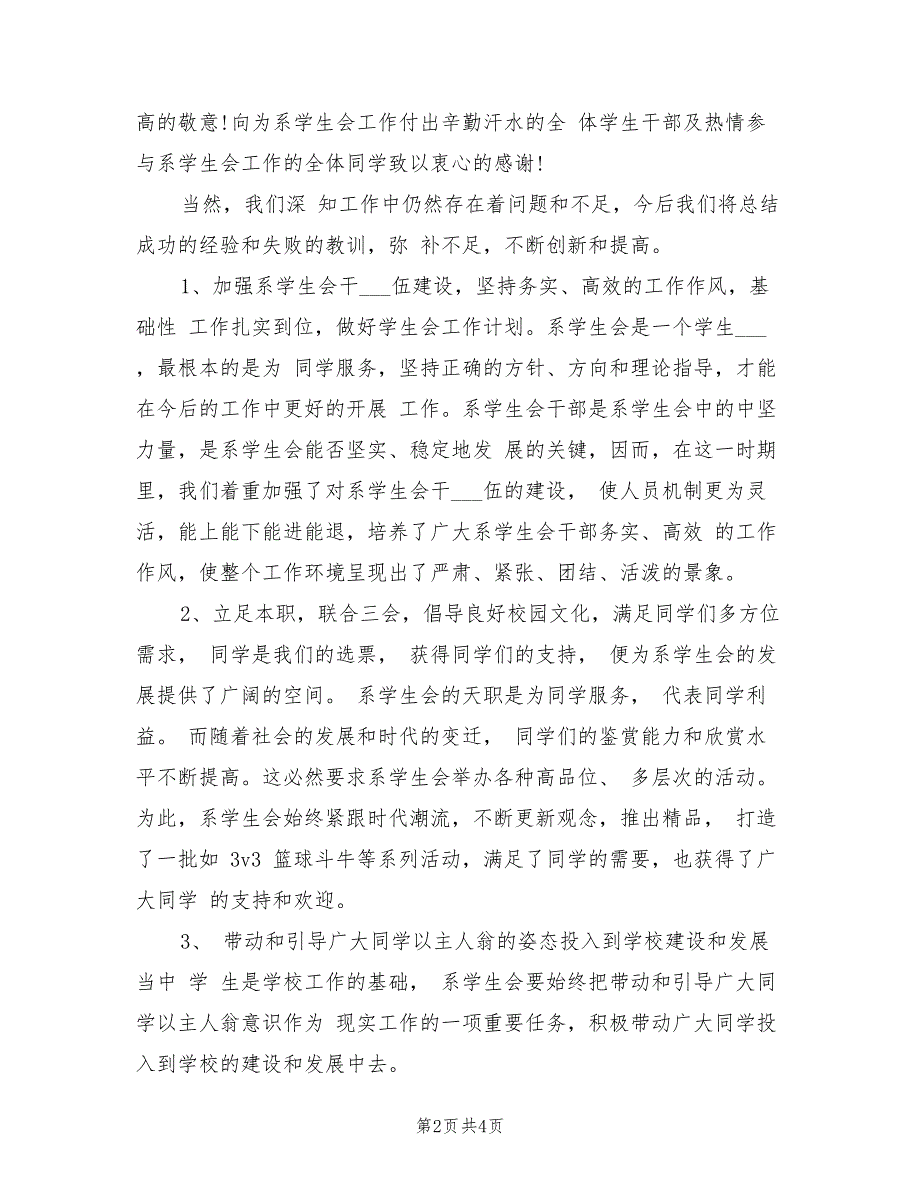 高的敬意!向为系学生会工作付出辛勤汗水的全 体学生干部及热情参
与系学生会工作的全体同学致以衷心的感谢!
当然，我们深 知工作中仍然存在着问题和不足，今后我们将总结
成功的经验和失败的教训，弥 补不足，不断创新和提高。
1、加强系学生会干___伍建设，坚持务实、高效的工作作风，基
础性 工作扎实到位，做好学生会工作计划。系学生会是一个学生___
，最根本的是为 同学服务，坚持正确的方针、方向和理论指导，才能
在今后的工作中更好的开展 工作。系学生会干部是系学生会中的中坚
力量，是系学生会能否坚实、稳定地发 展的关键，因而，在这一时期
里，我们着重加强了对系学生会干___伍的建设， 使人员机制更为灵
活，能上能下能进能退，培养了广大系学生会干部务实、高效 的工作
作风，使整个工作环境呈现出了严肃、紧张、团结、活泼的景象。
2、立足本职，联合三会，倡导良好校园文化，满足同学们多方位
需求， 同学是我们的选票， 获得同学们的支持， 便为系学生会的发
展提供了广阔的空间。 系学生会的天职是为同学服务， 代表同学利
益。 而随着社会的发展和时代的变迁， 同学们的鉴赏能力和欣赏水
平不断提高。这必然要求系学生会举办各种高品位、 多层次的活动。
为此，系学生会始终紧跟时代潮流，不断更新观念，推出精品， 打造
了一批如 3v3 篮球斗牛等系列活动，满足了同学的需要，也获得了广
大同学 的支持和欢迎。
3、 带动和引导广大同学以主人翁的姿态投入到学校建设和发展
当中 学 生是学校工作的基础， 系学生会要始终把带动和引导广大同
学以主人翁意识作为 现实工作的一项重要任务，积极带动广大同学投
入到学校的建设和发展中去。
第2页共4页